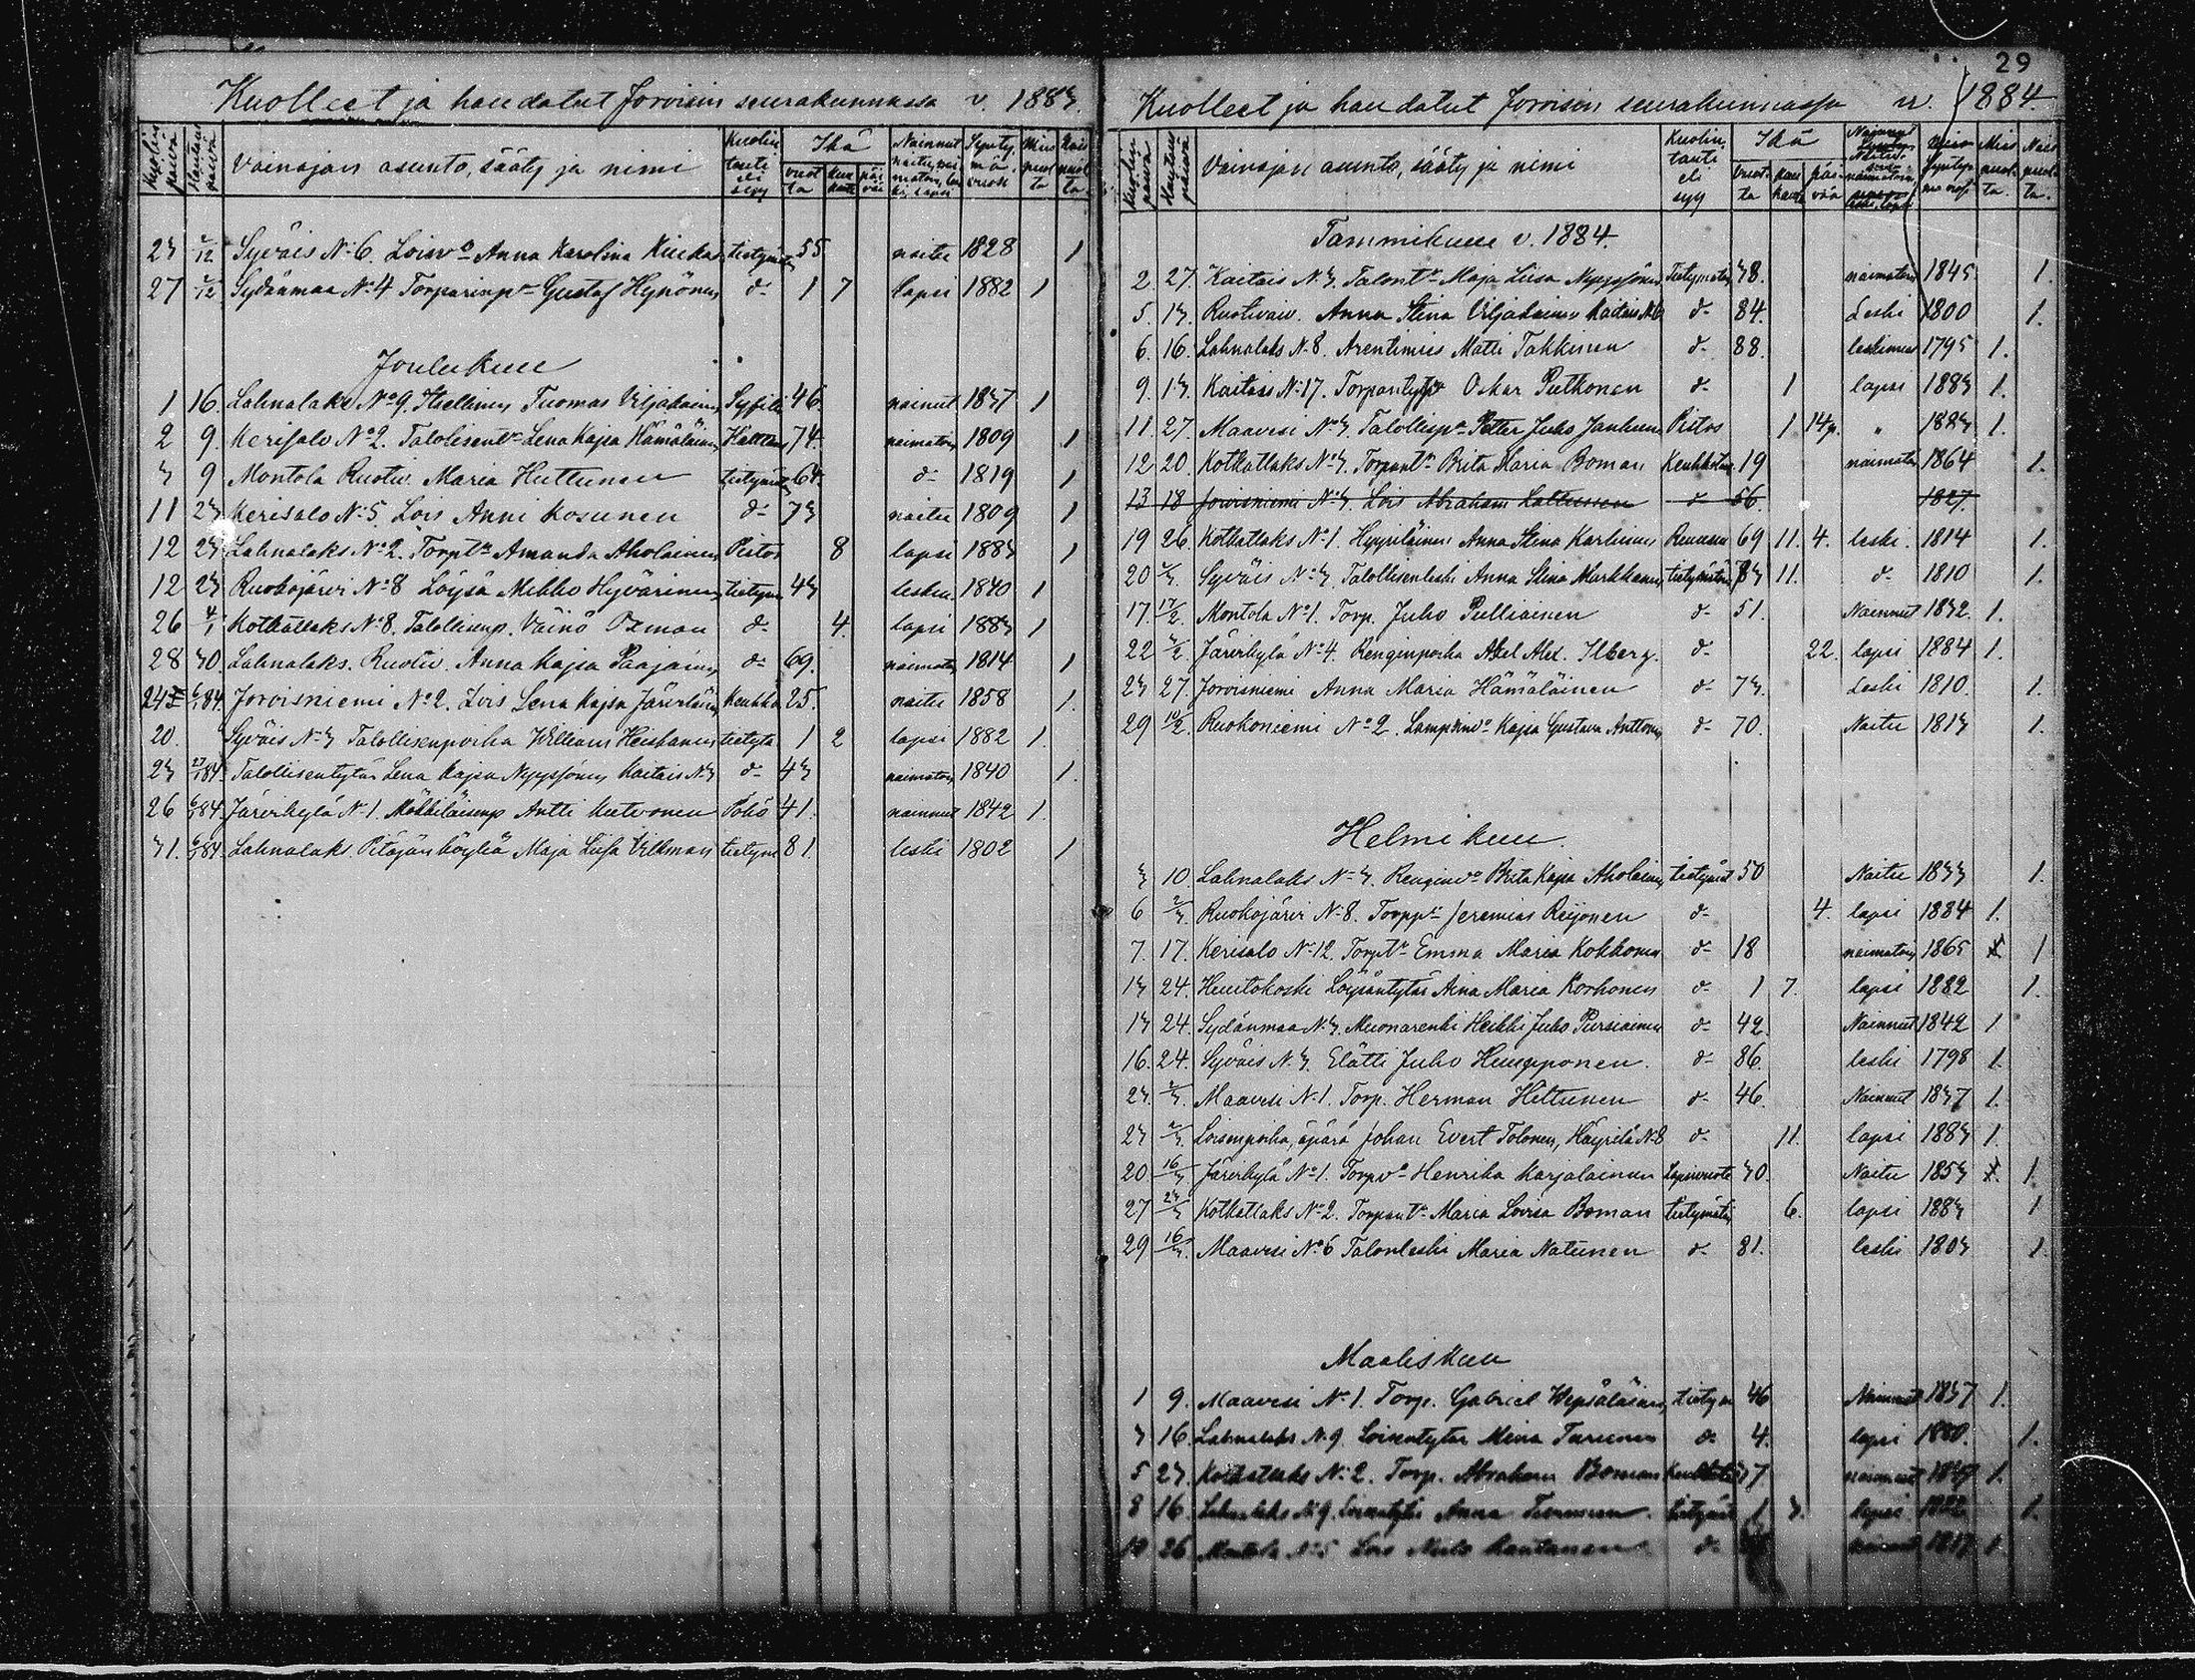 Kuolleet ja haudatut Joroisin seurakunnassa v. 1883.
Kuolin päivä Hautaus päivä Vainajan asunto, sääty ja nimi Kuolin tauti eli syy Ikä vuotta kuukautta päivää Nainut naitu, naimaton, leski, lapsi Syntymävuosi Mies puolta Nais puolta
23 2/12 Syväis No 6. Loisvo Anna Karolina Kiukas tietymätön 55 naitu 1828 1
27 2/12 Sydänmaa No 4 Torparinp. Gustaf Hynönen do 1 7 lapsi 1882 1
Joulukuu
1 16. Lahnalaks No 9. Itsellinen Tuomas Viljakainen Syfilis 46. nainut 1837 1
2 9. Kerisalo No 2. Talolisentr Lena Kajsa Hämäläinen 74. naimaton 1809 1
3 9 Montola Ruotiv. Maria Huttunen tietymät 64. do 1819 1
11 23 Kerisalo No 5. Lois Anni Kosunen do 73 naitu 1809 1
12 23 Lahnalaks No 2. Torptr Amanda Aholainen Pistos 8 lapsi 1883 1
12 23 Ruokojärvi No 8 Löysä Mikko Hyvärinen tietym 43 leskim. 1840 1
26 4/1 Kotkatlaks No 8. Talollisenp. Väinö Osman do 4. lapsi 1883 1
28 30. Lahnalaks. Ruotiv. Anna Kajsa Paajanen do 69. naimaton 1814 1
24 6/1 84. Joroisniemi No 2. Lois Lena Kajsa Järveläinen Keuhko 25. naitu 1858 1.
20. Syväis No 3 Talollisenpoika William Heiskanen tietyta 1 2 lapsi 1882 1.
23 27/1 84 Talollisentytär Lena Kajsa Nyyssönen Kaitais No 3 do 43 naimaton 1840 1.
26 6/1 84. Järvikylä No 1. Mökkiläisenp Antti Kutvonen Pöhö 41. nainnut 1842 1.
31. 6/1 84. Lahnalaks. Pitäjän köyhä Maja Liisa Vilkman tietym 81. leski 1802 1
29
Kuolleet ja haudatut Joroisin seurakunnassa v. 1884
Kuolin päivä Hautaus päivä Vainajan asunto, sääty ja nimi Kuolin tauti eli syy Ikä vuotta kuukautta päivää Mies puolta. Nais puolta.
Tammikuu v. 1884.
2. 27. Kaitais No 3. Talontr Maja Liisa Nyyssönen Tietymätön 38. naimaton 1845 1.
5. 13. Ruotivaiv. Anna Stina Viljakainen Kaitais No 6 do 84. Leski 1800 1.
6. 16. Lahnalaks No 8. Arentimies Matti Takkinen do 88. leskimies 1795 1.
9. 13. Kaitais No 17. Oskar Putkonen do 1 lapsi 1883 1.
11. 27. Maavesi No 3. Talollisp. Petter Juho Janhunen Pistos 1 14p. " 1883 1.
12 20. Kotkatlaks No 3. Torpantr Brita Maria Boman Keuhkotau 19 naimaton 1864 1.
13 18 Joroisniemi No 3. Lois Abraham Lattunen do 56. 1827.
19 26. Kotkatlaks No 1. Hyyriläinen Anna Stina Karhinen 69 11. 4. leski. 1814 1.
20 2/3. Syväis No 3. Talollisenleski Anna Stina Markkanen tietymätön 73 11. do 1810 1.
17. 17/2. Montola No 1. Torp. Juho Pulliainen do 51. Nainnut 1832. 1.
22 3/2. Järvikylä No 4. Renginpoika Axel Alex. Ilberg. do 22. lapsi 1884 1.
23 27. Joroisniemi Anna Maria Hämäläinen do 73. Leski 1810. 1.
29 10/2. Ruokoniemi No 2. Kajsa Gustava Anttonen do 70. Naitu 1813 1.
Helmikuu.
3 10. Lahnalaks No 3. Renginvo Brita Kajsa Aholainen tietymät 50 Naitu 1833 1.
6 2/3. Ruokojärvi No 8. Torpp. Jeremias Reijonen do 4. lapsi 1884 1.
7. 17. Kerisalo No 12. Torptr Emma Maria Kokkonen do 18 naimaton 1865 1
13 24. Huutokoski Löysäntytär Aina Maria Korhonen do 1 7. lapsi 1882 1.
13 24. Sydänmaa No 3. Muonarenki Heikki Juho Pursiainen do 42. Nainnut 1842 1
16. 24. Syväis No 3. Elätti Juho Huupponen. do 86. leski 1798 1.
23. 2/3. Maavesi No 1. Torp. Herman Hiltunen do 46. Nainnut 1837 1.
23 2/3. Loisenpoika, äpärä Johan Evert Tolonen, Häyrilä No 8 do 11. lapsi 1883 1.
20 16/3 Järvikylä No 1. Torpvo Henrika Karjalainen Lapsivuote 30. Naitu 1853 1.
27 23/3 Kotkatlaks No 2. Torpantr Maria Lovisa Boman tietymätön 6. lapsi 1883 1
29 16/3. Maavesi No 6 Talonleski Maria Natunen do 81. leski 1803 1.
Maaliskuu
1 9. Maavesi No 1. Torp. Gabriel Wepsäläinen tietym 46 Nainnut 1837 1.
3 16. Lahnalaks No 9. Loisentytär Miina Turunen do 4. lapsi 1880. 1.
5 23. Kotkatlaks No 2. Torp. Abraham Boman 37 nainnut 1847 1.
8 16. Lahnalaks No 9. Loisentytär Anna Turunen. tietymät 1 3. lapsi. 1882 1.
26. Montola No 5 Lois do 1817 1.